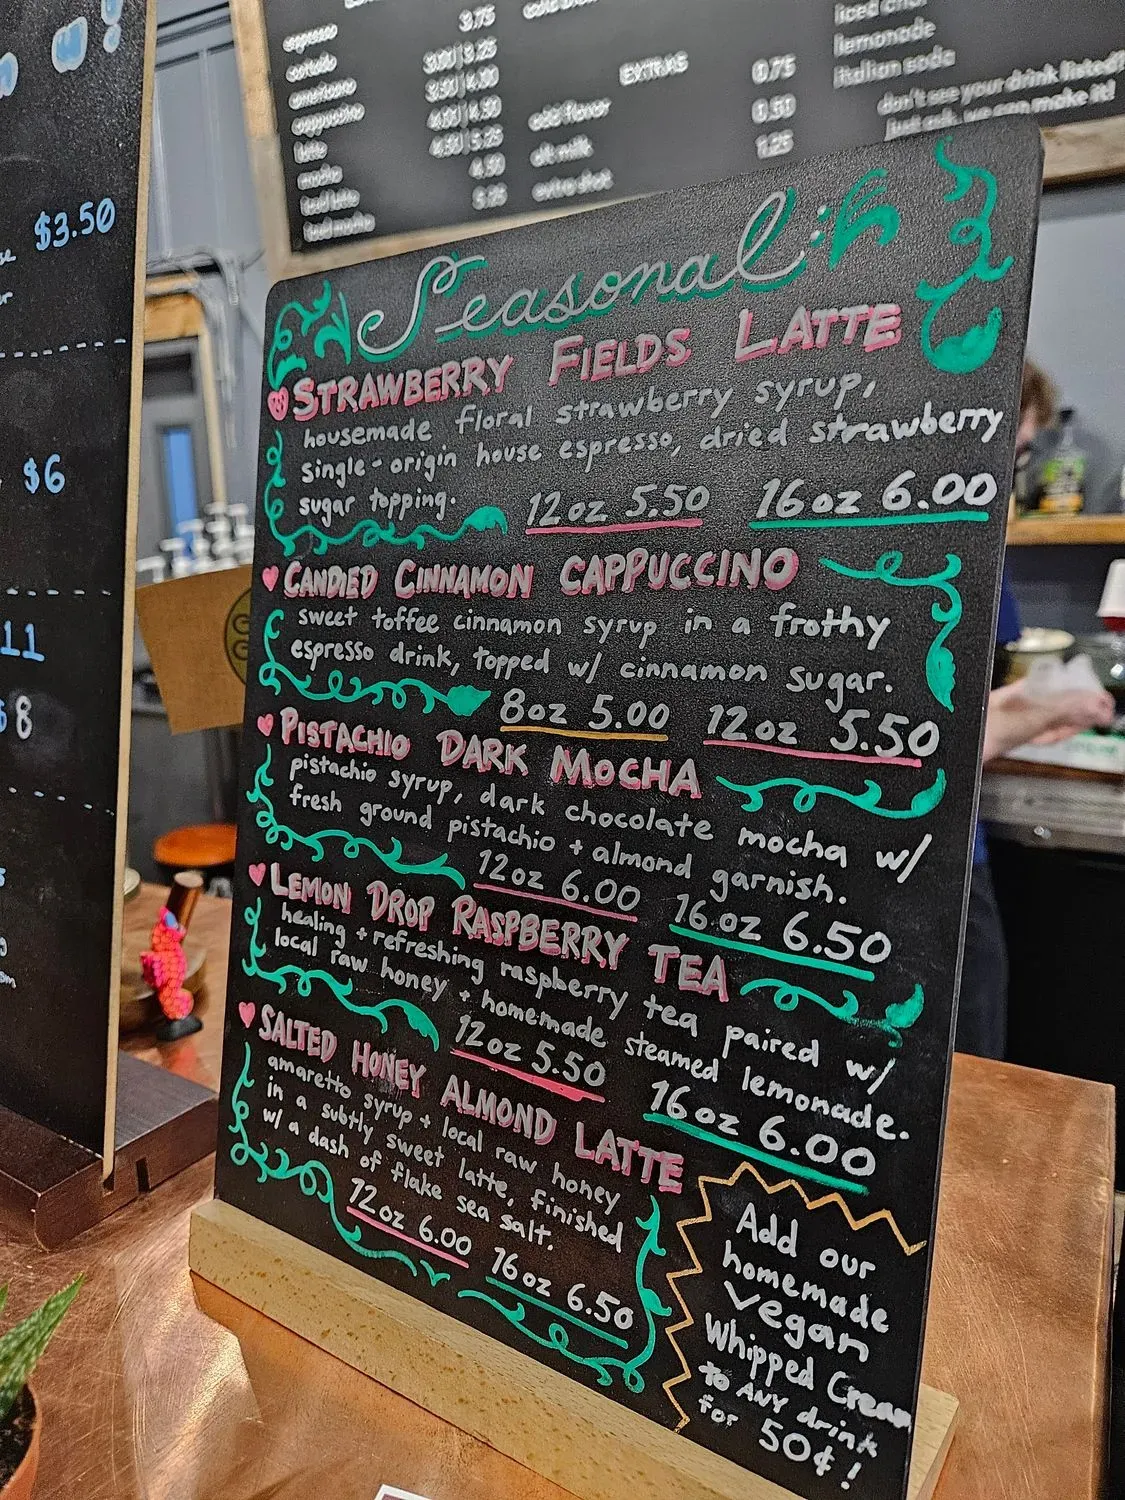 $3.50
$6
11
$8
espresso
cortado
americano
cappuccino
latte
mocha
iced latte
iced mocha
3.75
4.50
5.25
EXTRAS
add flavor
alt milk
extra shot
0.75
0.50
1.25
lemonade
italian soda
don't see your drink listed?
Just ask, we can make it!
Seasonal:
STRAWBERRY FIELDS LATTE
housemade floral strawberry syrup,
single-origin house espresso, dried strawberry
sugar topping.
12oz 5.50 16oz 6.00
CANDIED CINNAMON CAPPUCCINO
sweet toffee cinnamon syrup in a frothy
espresso drink, topped w/ cinnamon sugar.
8oz 5.00 12oz 5.50
PISTACHIO DARK MOCHA
pistachio syrup, dark chocolate mocha w/
fresh ground pistachio + almond garnish.
12oz 6.00 16oz 6.50
LEMON DROP RASPBERRY TEA
healing + refreshing raspberry tea paired w/
local raw honey + homemade steamed lemonade.
12oz 5.50 16oz 6.00
SALTED HONEY ALMOND LATTE
amaretto syrup + local raw honey
in a subtly sweet latte, finished
w/ a dash of flake sea salt.
12oz 6.00 16oz 6.50
Add our
homemade
vegan
Whipped Cream
to ANY drink
for 50¢!